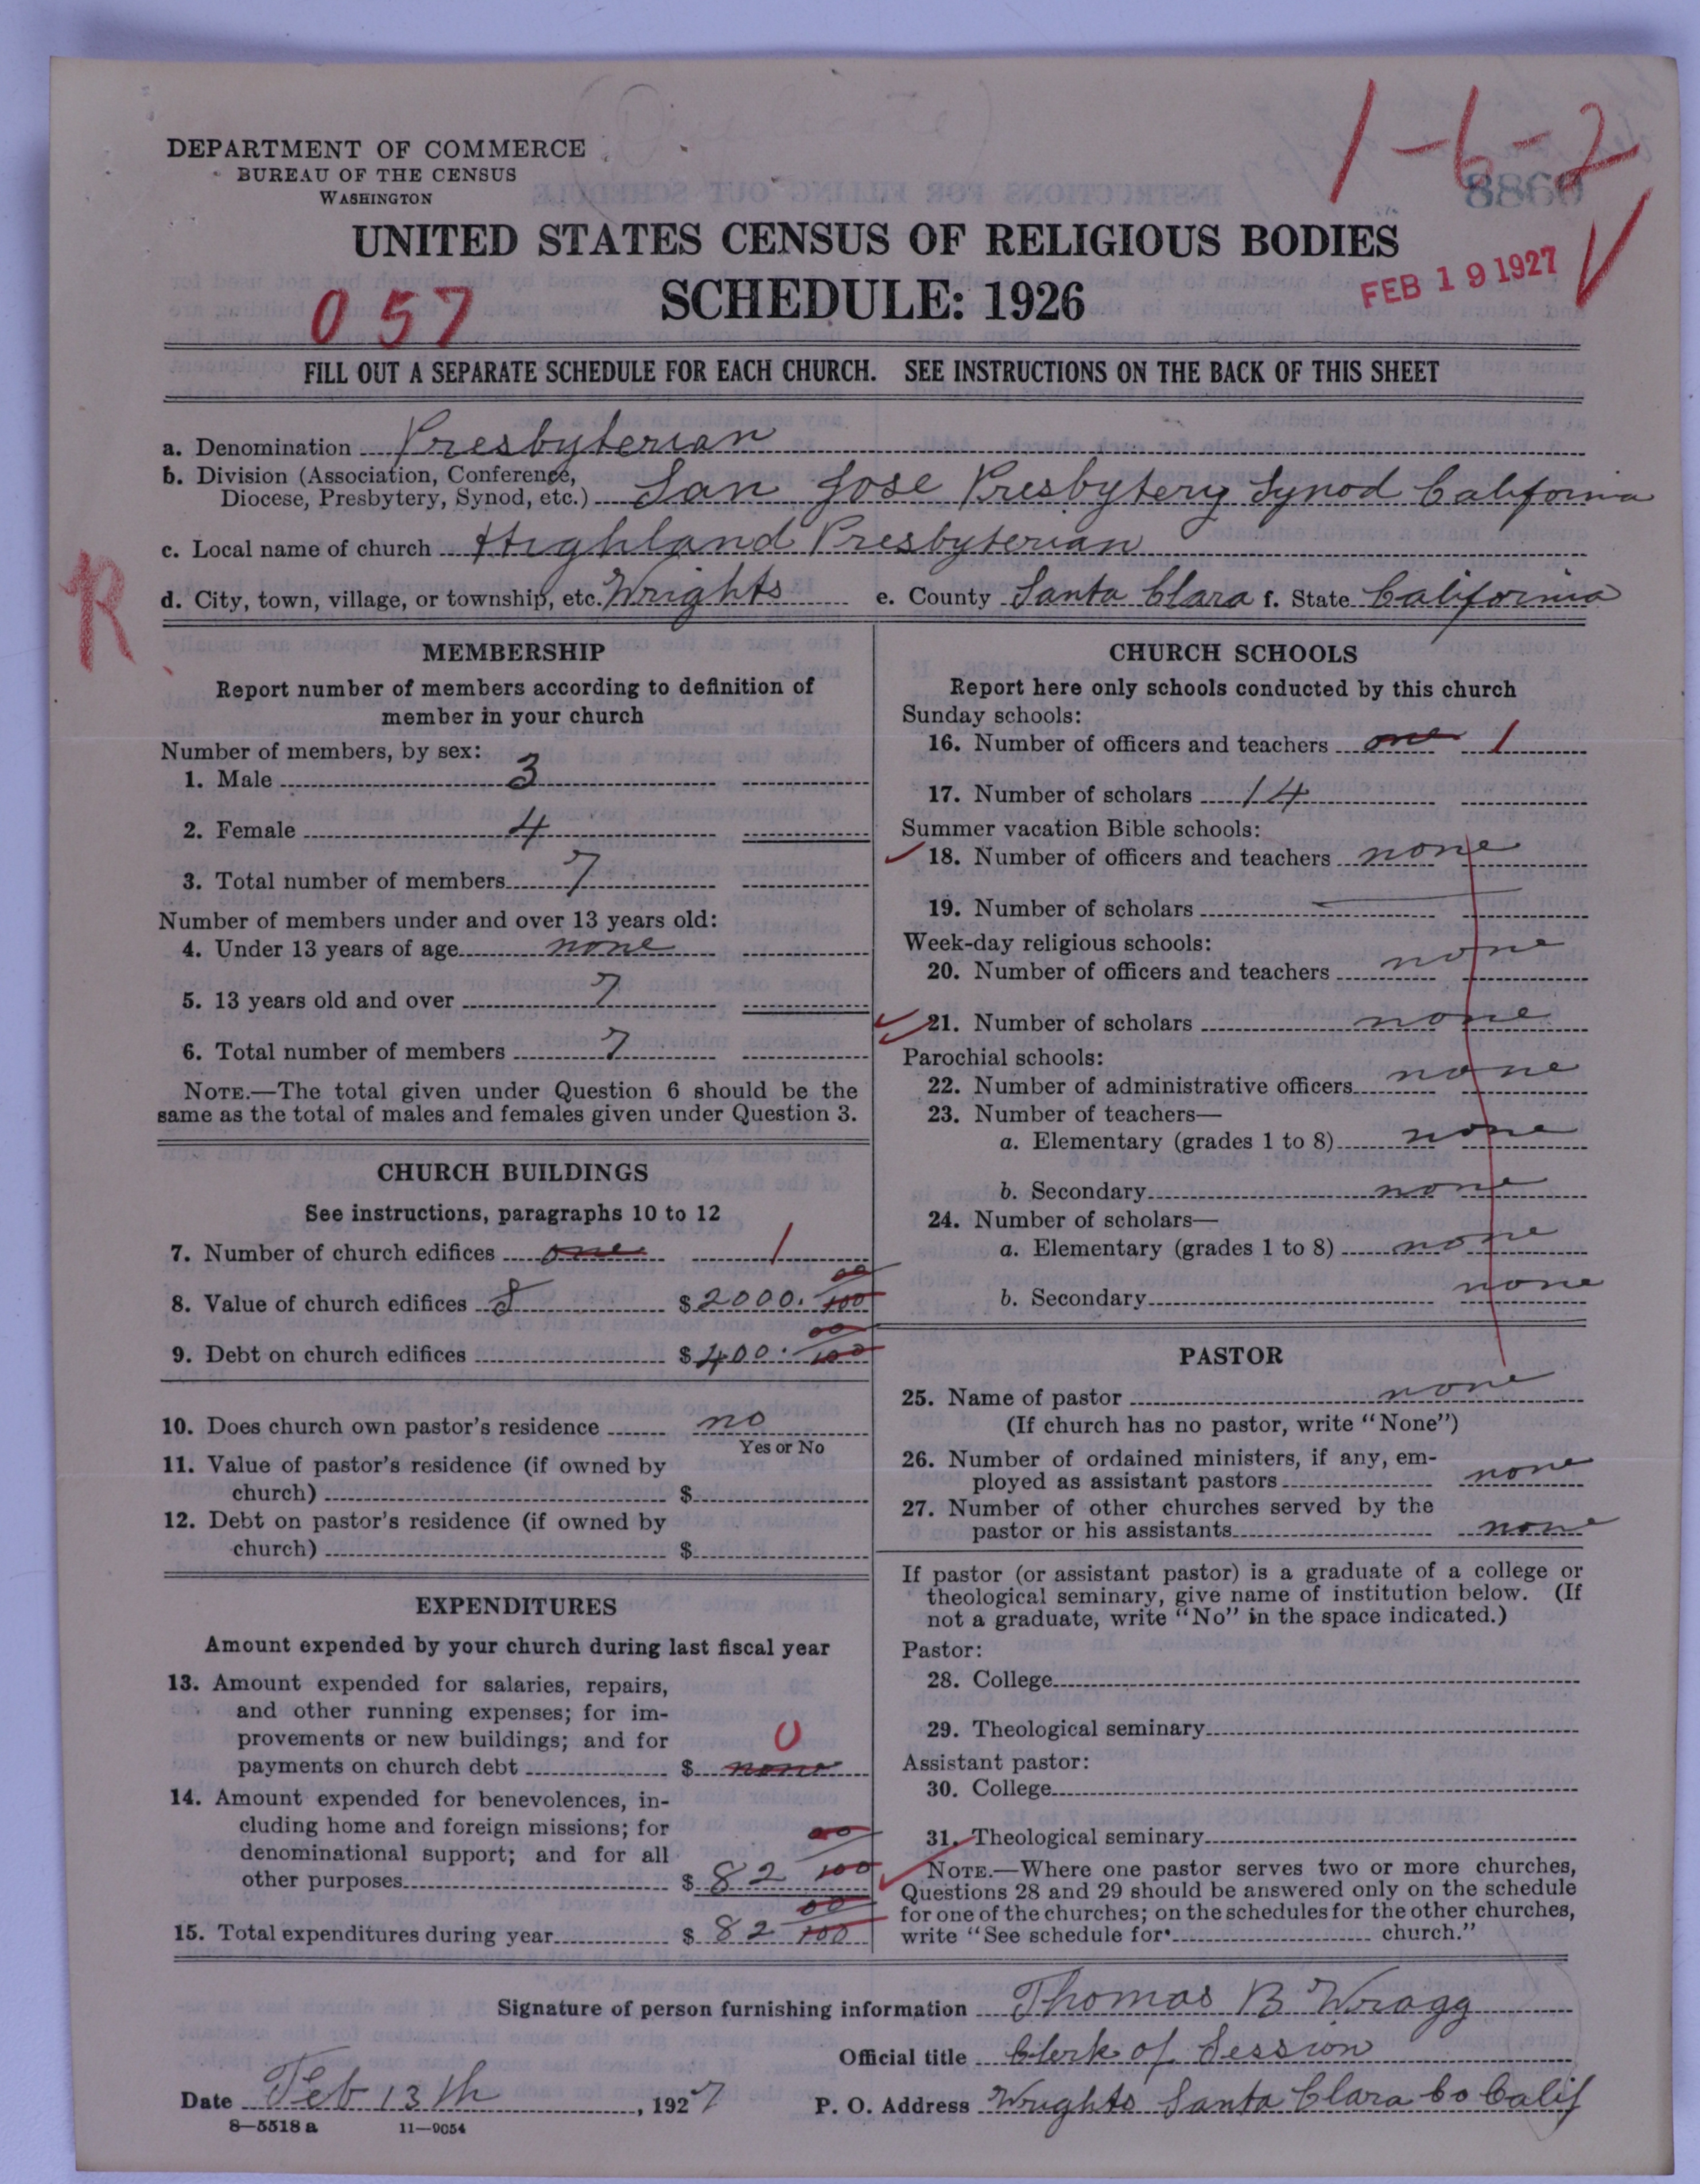 1-6-2
8869
DEPARTMENT OF COMMERCE
BUREAU OF THE CENSUS
WASHINGTON
UNITED STATES CENSUS OF RELIGIOUS BODIES
FEB 19 1927
057
SCHEDULE: 1926
FILL OUT A SEPARATE SCHEDULE FOR EACH CHURCH. SEE INSTRUCTIONS ON THE BACK OF THIS SHEET
a. Denomination Presbyterian
b. Division (Association, Conference,
Diocese, Presbytery, Synod, etc.) San Jose Presbytery Synod California
c. Local name of church Highland Presbyterian
R
d. City, town, village, or township, etc. Wrights e. County Santa Clara f. State California
MEMBERSHIP
Report number of members according to definition of
member in your church
Number of members, by sex:
1. Male 3
2. Female 4
3. Total number of members 7
Number of members under and over 13 years old:
4. Under 13 years of age none
5. 13 years old and over 7
6. Total number of members 7
NOTE.—The total given under Question 6 should be the
same as the total of males and females given under Question 3.
CHURCH BUILDINGS
See instructions, paragraphs 10 to 12
7. Number of church edifices one 1
8. Value of church edifices $2000. 00/100
9. Debt on church edifices $400. 00/100
10. Does church own pastor's residence no
Yes or No
11. Value of pastor's residence (if owned by
church) $
12. Debt on pastor's residence (if owned by
church) $
EXPENDITURES
Amount expended by your church during last fiscal year
13. Amount expended for salaries, repairs,
and other running expenses; for im-
provements or new buildings; and for
payments on church debt $ none 0
14. Amount expended for benevolences, in-
cluding home and foreign missions; for
denominational support; and for all
other purposes $ 82 00/100
15. Total expenditures during year $ 82 00/100
CHURCH SCHOOLS
Report here only schools conducted by this church
Sunday schools:
16. Number of officers and teachers one 1
17. Number of scholars 14
Summer vacation Bible schools:
18. Number of officers and teachers none
19. Number of scholars
Week-day religious schools:
20. Number of officers and teachers none
21. Number of scholars none
Parochial schools:
22. Number of administrative officers none
23. Number of teachers—
a. Elementary (grades 1 to 8) none
b. Secondary none
24. Number of scholars—
a. Elementary (grades 1 to 8) none
b. Secondary none
PASTOR
25. Name of pastor none
(If church has no pastor, write "None")
26. Number of ordained ministers, if any, em-
ployed as assistant pastors none
27. Number of other churches served by the
pastor or his assistants none
If pastor (or assistant pastor) is a graduate of a college or
theological seminary, give name of institution below. (If
not a graduate, write "No" in the space indicated.)
Pastor:
28. College
29. Theological seminary
Assistant pastor:
30. College
31. Theological seminary
NOTE.—Where one pastor serves two or more churches,
Questions 28 and 29 should be answered only on the schedule
for one of the churches; on the schedules for the other churches,
write "See schedule for church."
Signature of person furnishing information Thomas B Wragg
Official title Clerk of Session
Date Feb 13th, 1927 P. O. Address Wrights Santa Clara Co Calif
8—5518 a 11—9054